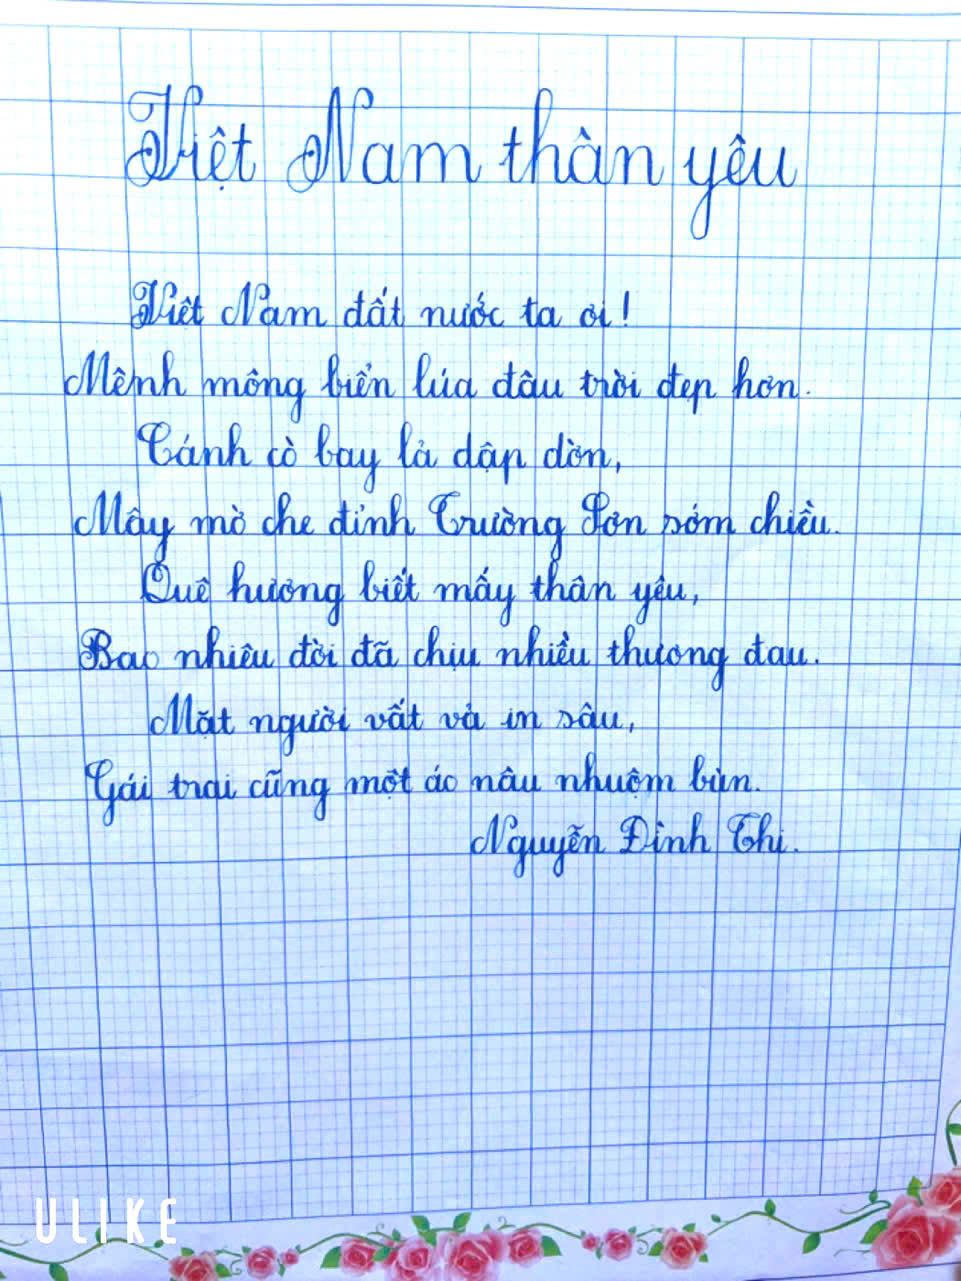 Việt Nam thân yêu
Việt Nam đất nước ta ơi!
Mênh mông biển lúa đâu trời đẹp hơn.
Cánh cò bay lả dập dờn,
Mây mờ che đỉnh Trường Sơn sớm chiều.
Quê hương biết mấy thân yêu,
Bao nhiêu đời đã chịu nhiều thương đau.
Mặt người vất vả in sâu,
Gái trai cũng một áo nâu nhuộm bùn.
Nguyễn Đình Thi.
ULIKE